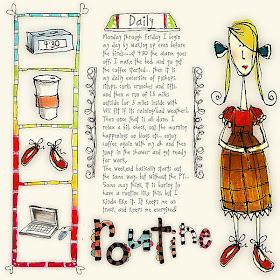 Daily
Monday through Friday I begin
my day by waking up even before
the birds...at 4:30 the alarm goes
off, I make the bed and go get
the coffee started... then it is
my daily exercise of pushups,
situps, curls, crunches and lifts
and then a run of 1.5 miles
outside (or 3 miles inside with
Wii fit if its raining/bad weather).
Then once that is all done, I
relax a bit, check out the morning
happenings on blog et... enjoy
coffee again with my dh and then
jump in the shower and get ready
for work.
The weekend basically starts out
the same way but without the PT...
Some may think it is boring to
have a routine like this, but I
like it. It keeps me on
track, and keeps me energized.
4:30
routine